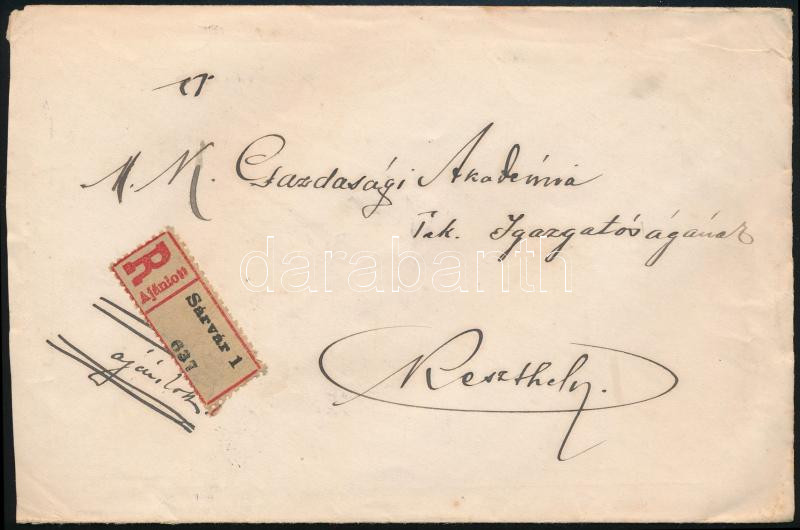 M. K. Gazdasági Akadémia
Tek. Igazgatóságának
R
Ajánlott
Sárvár 1
637
ajánlott.
Keszthely.
darabanth